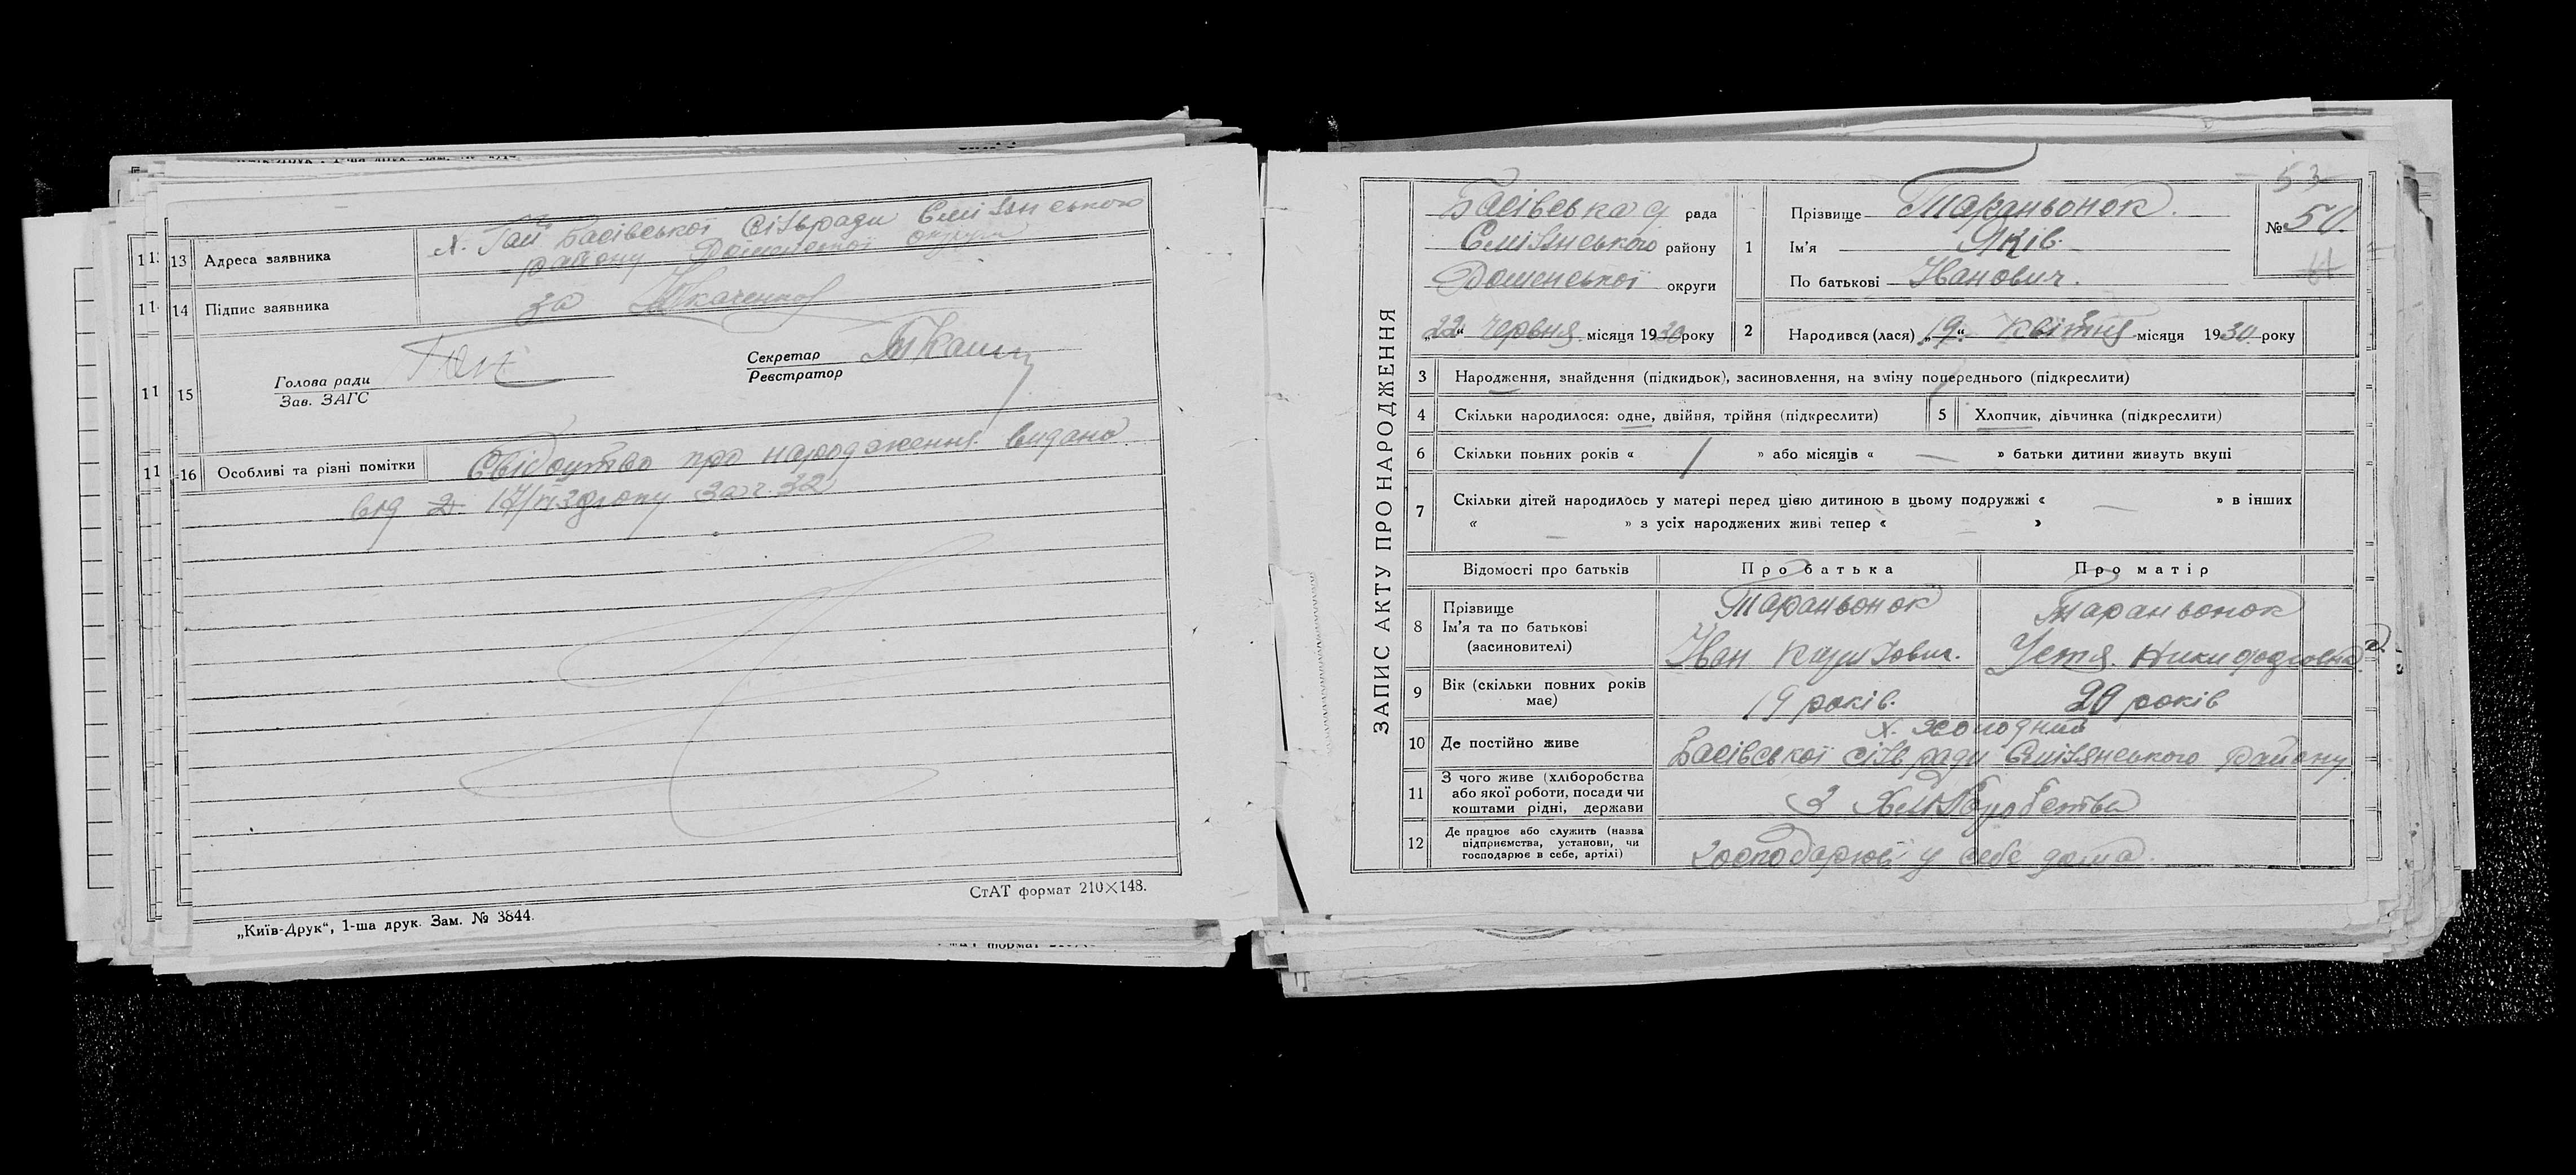 13 Адреса заявника х. Гай Басівської сільради Смілянського
району Роменської округи
14 Підпис заявника за Ткаченко
15 Голова ради
Зав. ЗАГС
Секретар
Реєстратор
16 Особливі та різні помітки Свідоцтво про народження видано
від
за ч. 32
СтАТ формат 210×148.
„Київ-Друк“, 1-ша друк. Зам. № 3844.
ЗАПИС АКТУ ПРО НАРОДЖЕННЯ
53
Басівська рада
Смілянського району
Роменської округи
„22“ червня місяця 1930 року
1 Прізвище Тараньонок
Ім'я Яків
По батькові Іванович.
№ 50.
2 Народився (лася) „19“ квітня місяця 1930 року
3 Народження, знайдення (підкидьок), засиновлення, на зміну попереднього (підкреслити)
4 Скільки народилося: одне, двійня, трійня (підкреслити)
5 Хлопчик, дівчинка (підкреслити)
6 Скільки повних років « 1 » або місяців « — » батьки дитини живуть вкупі
7 Скільки дітей народилось у матері перед цією дитиною в цьому подружжі « — » в інших
« — » з усіх народжених живі тепер « — »
Відомості про батьків Про батька Про матір
8 Прізвище
Ім'я та по батькові
(засновителі)
Тараньонок
Іван
Тараньонок
Устя Никифоровна
9 Вік (скільки повних років
має)
19 років. 20 років
10 Де постійно живе х. Холодний
Басівської сільради Смілянського району
11 З чого живе (хліборобства
або якої роботи, посади чи
коштами рідні, держави
З Хліборобства
12 Де працює або служить (назва
підприємства, установи, чи
господарює в себе, артілі)
господарює у себе дома.